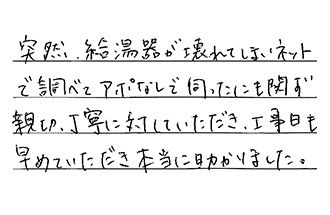 突然、給湯器が壊れてしまいネット
で調べてアポなしで伺ったにも関ず
親切、丁寧に対していただき、工事日も
早めていただき本当に助かりました。